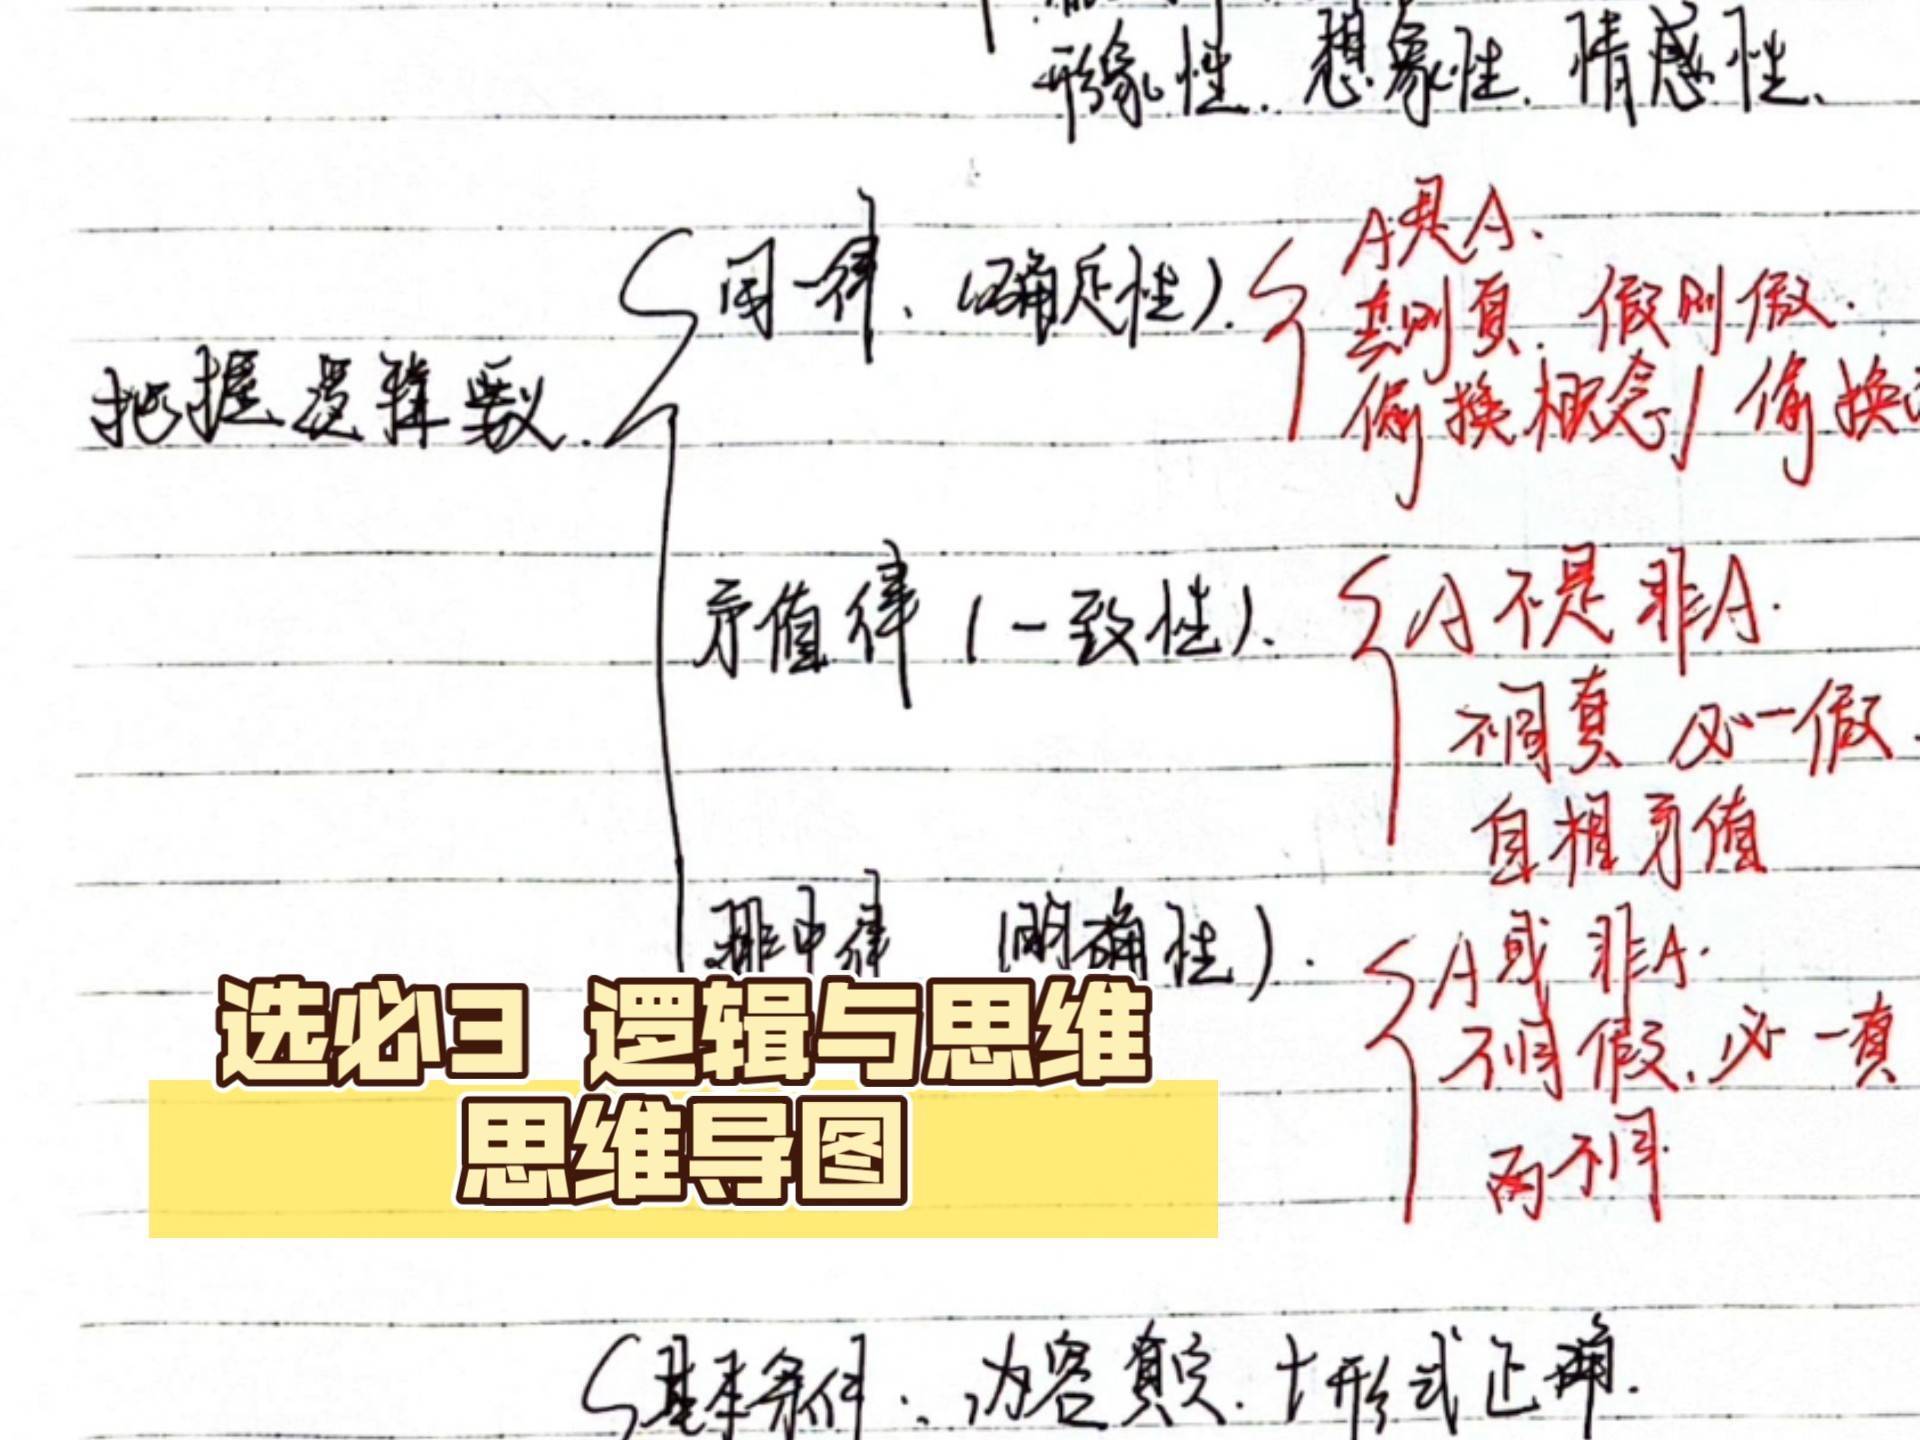 形象性、想象性、情感性、
A是A.
同一律、(确定性).
真则真. 假则假.
把握逻辑要义.
偷换概念/偷换
矛盾律(一致性).
A不是非A.
不同真 必一假.
自相矛盾
排中律 (明确性).
A或非A.
不同假.必一真
两不同
选必3 逻辑与思维
思维导图
基本条件:内容真实.+形式正确.